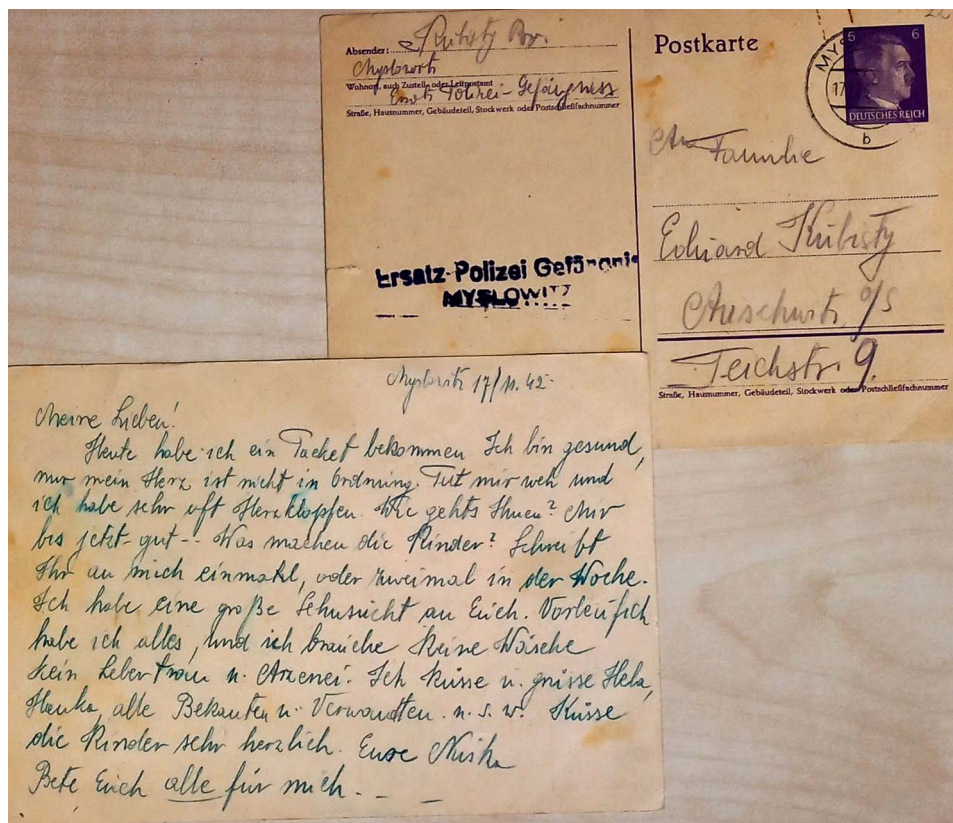 Absender: Kubisty Br.
Myslowitz
Wohnort, auch Zustell- oder Leitpostamt
Ersatz Polizei-Gefängness
Straße, Hausnummer, Gebäudeteil, Stockwerk oder Postschließfachnummer
Ersatz-Polizei Gefängnis
MYSLOWITZ
Postkarte
6 6
DEUTSCHES REICH
MYS
17
b
An Familie
Eduard Kubisty
Auschwitz o/S
Teichstr. 9.
Straße, Hausnummer, Gebäudeteil, Stockwerk oder Postschließfachnummer
Myslowitz 17/11. 42.
Meine Lieben!
Heute habe ich ein Packet bekommen Ich bin gesund,
nur mein Herz ist nicht in Ordnung. Tut mir weh und
ich habe sehr oft Herzklopfen. Wie gehts Ihnen? Mir
bis jetzt- gut-- Was machen die Kinder? Schreibt
Ihr an mich einmahl, oder zweimal in der Woche.
Ich habe eine große Sehnsucht an Euch. Vorleufich
habe ich alles, und ich brauche keine Wäsche
kein Lebertran u. Arzenei. Ich küsse u. grüsse Hela,
Hanka, alle Bekanten u. Verwandten. u. s. w. Küsse
die Kinder sehr herzlich. Eure
Bete Euch alle für mich. - -